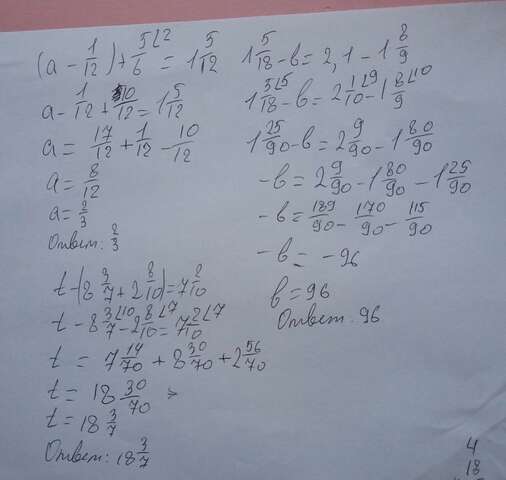 (a - 1/12) + 5/6 ∠2 = 1 5/12
a - 1/12 + 10/12 = 1 5/12
a = 17/12 + 1/12 - 10/12
a = 8/12
a = 2/3
Ответ: 2/3
t - (8 3/7 + 2 8/10) = 7 2/10
t - 8 3∠10/7 - 2 8∠7/10 = 7 2∠7/10
t = 7 14/70 + 8 30/70 + 2 56/70
t = 18 30/70
t = 18 3/7
Ответ: 18 3/7
1 5/18 - b = 2,1 - 1 8/9
1 5∠5/18 - b = 2 1∠9/10 - 1 8∠10/9
1 25/90 - b = 2 9/90 - 1 80/90
-b = 2 9/90 - 1 80/90 - 1 25/90
-b = 189/90 - 170/90 - 115/90
-b = -96
b = 96
Ответ: 96
4
18